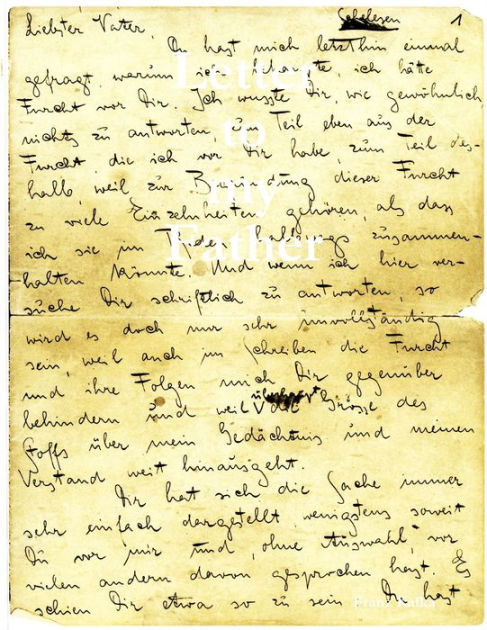 Schelesen 1
Liebster Vater,
Du hast mich letzthin einmal
gefragt, warum ich behaupte, ich hätte
Furcht vor Dir. Ich wusste Dir, wie gewöhnlich,
nichts zu antworten, zum Teil eben aus der
Furcht, die ich vor Dir habe, zum Teil des-
halb, weil zur Begründung dieser Furcht
zu viele Einzelnheiten gehören, als dass
ich sie im Reden halbwegs zusammen-
halten könnte. Und wenn ich hier ver-
suche Dir schriftlich zu antworten, so
wird es doch nur sehr unvollständig
sein, weil auch im Schreiben die Furcht
und ihre Folgen mich Dir gegenüber
behindern und weil überhaupt die Grösse des
Stoffs über mein Gedächtnis und meinen
Verstand weit hinausgeht.
Dir hat sich die Sache immer
sehr einfach dargestellt, wenigstens soweit
Du vor mir und, ohne Auswahl, vor
vielen andern davon gesprochen hast. Es
schien Dir etwa so zu sein: Du hast
Letter
to
my
Father
Franz Kafka